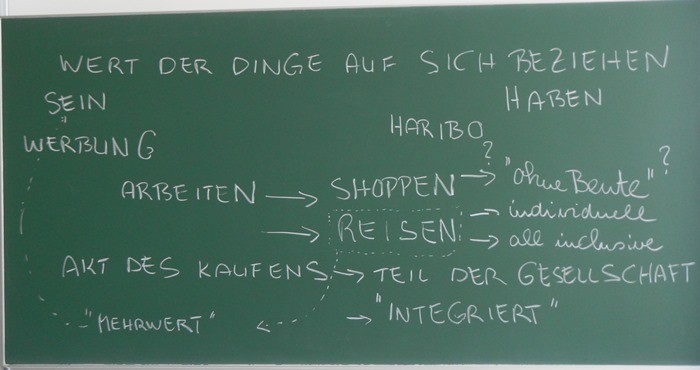 WERT DER DINGE AUF SICH BEZIEHEN
SEIN
HABEN
WERBUNG
HARIBO
?
ARBEITEN → SHOPPEN → "ohne Beute" ?
→ REISEN → individuell
→ all inclusive
AKT DES KAUFENS → TEIL DER GESELLSCHAFT
"MEHRWERT" ← → "INTEGRIERT"